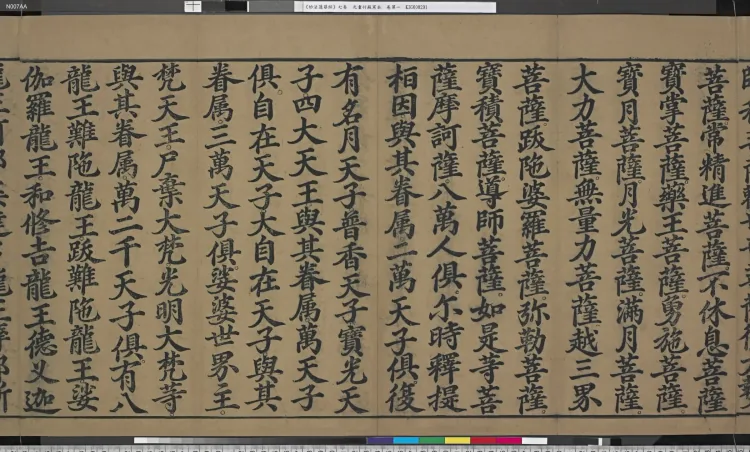 N007AA
菩薩常精進菩薩不休息菩薩
寶掌菩薩。藥王菩薩。勇施菩薩。
寶月菩薩。月光菩薩。滿月菩薩。
大力菩薩。無量力菩薩。越三界
菩薩跋陁婆羅菩薩。弥勒菩薩。
寶積菩薩導師菩薩。如是等菩
薩摩訶薩八萬人俱尒時釋提
桓因與其眷属二萬天子俱。復
有名月天子普香天子寶光天
子四大天王與其眷属萬天子
俱。自在天子大自在天子與其
眷属。三萬天子俱。娑婆世界主。
梵天王。尸棄大梵光明大梵等。
與其眷属萬二千天子俱。有八
龍王難陁龍王跋難陁龍王娑
伽羅龍王和修吉龍王德叉迦